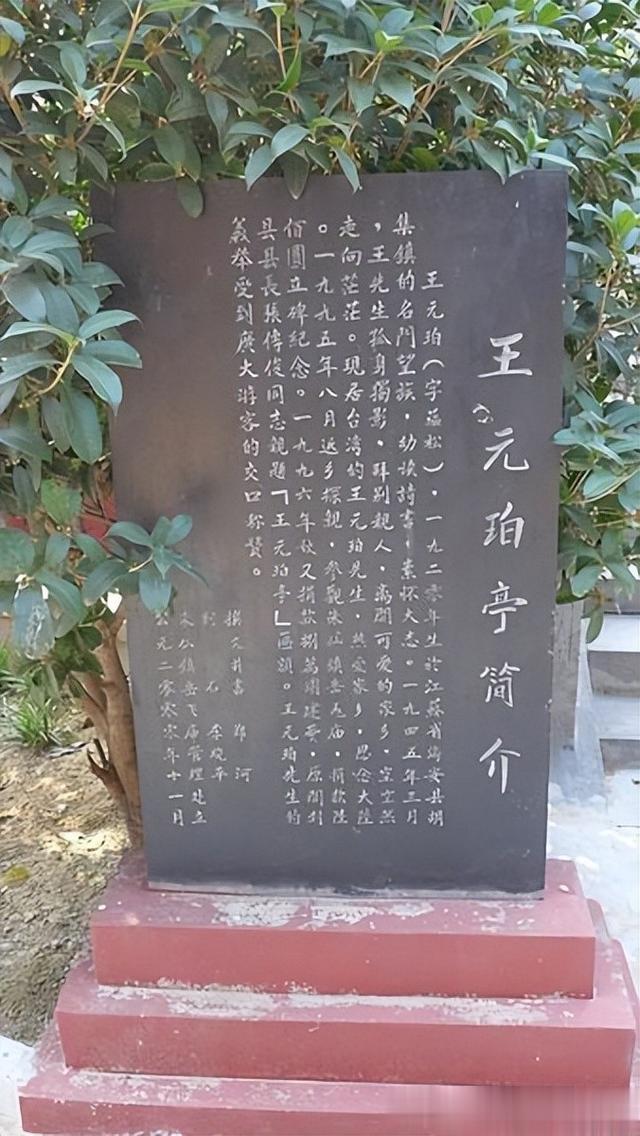 王元珀亭简介
王元珀（字蕴松），一九二零年生於江蘇省海安县胡
集鎮的名門望族，幼读詩書，素怀大志。一九四五年三月
，王先生孤身獨影，拜别親人，离開可爱的家乡，空空然
走向茫茫。现居台湾的王元珀先生，热爱家乡，思念大陸
。一九九五年八月返乡探親，参觀朱仙鎮岳飞庙，捐款陸
佰圓立碑纪念。一九九六年秋又捐款捌萬建亭，原開封
县县長張傳俊同志親題「王元珀亭」匾額。王元珀先生的
義举受到廣大游客的交口称贊。
撰文并書 郑河
刻 石 李
朱仙鎮岳飞庙管理处立
公元二零零零年十一月